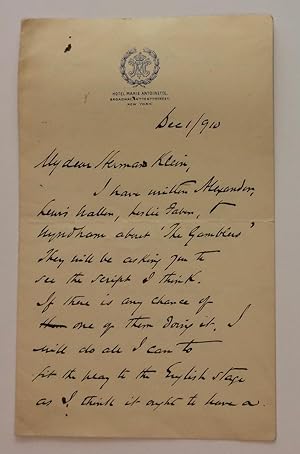 HOTEL MARIE ANTOINETTE,
BROADWAY, 66TH & 67TH STREETS
NEW YORK.
Dec 1/910
My dear Herman Klein,
I have written Alexander,
Lewis Waller, Leslie Faber, &
Wyndham about 'The Gamblers'
They will be asking you to
see the script I think.
If there is any chance of
one of them doing it. I
will do all I can to
fit the play to the English stage
as I think it ought to have a